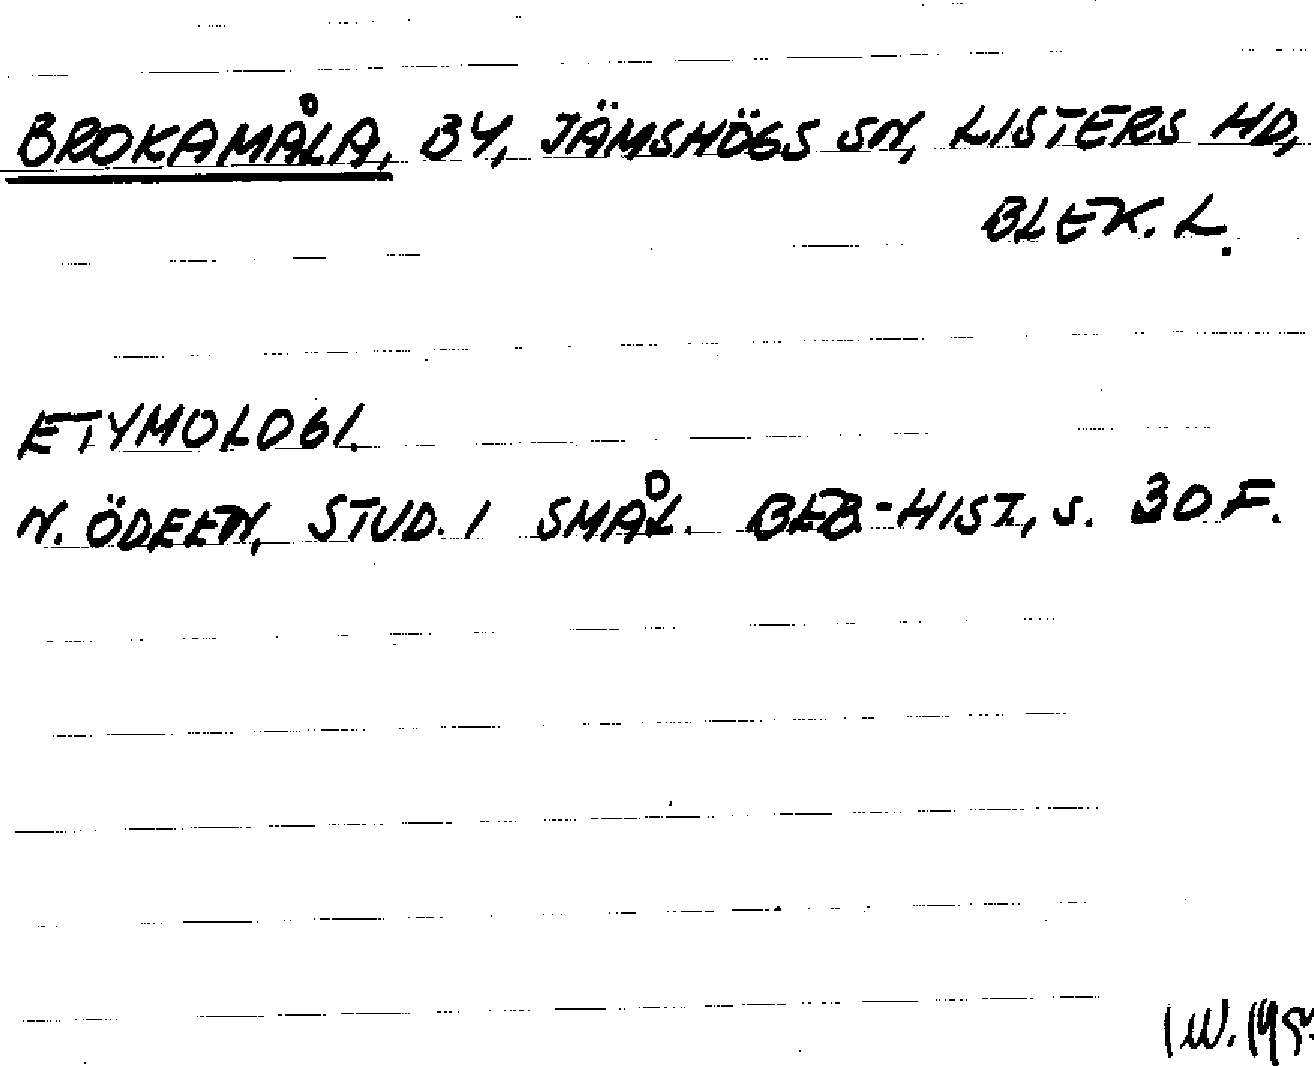 BROKAMÅLA, BY, JÄMSHÖGS SN, LISTERS HD,
BLEK. L.
ETYMOLOGI.
N. ÖDEEN, STUD. I SMÅL. BEB-HIST, S. 30 F.
IW.